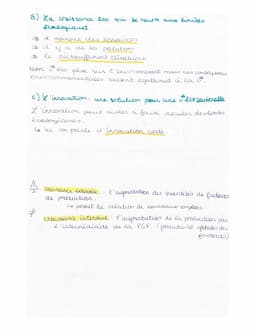 B) La croissance éco qui se heurte aux limites écologiques
→ il manque des ressources
→ il y a de la pollution
→ le réchauffement climatique
Non, l'éco pèse sur l'environnement mais ses conséquences environnementales
C) L'innovation : une solution pour une soutenable
L'innovation peut aider à faire reculer
écologiques.
↳ ici on parle d'innovation verte.
croissance extensive : l'augmentation des quantités de facteurs de production.
↳ permet la création de nouveaux emplois
≠
croissance intensive : l'augmentation de la production par l'intermédiaire de la PGF. (productivité globale des facteurs)